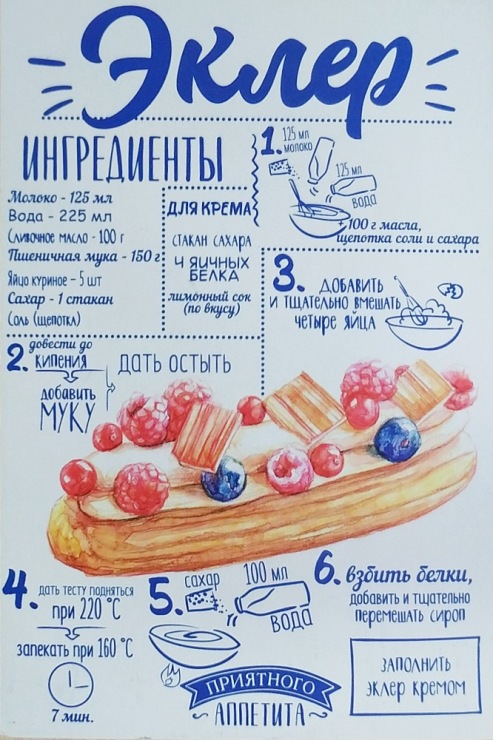 Эклер
ИНГРЕДИЕНТЫ
Молоко - 125 мл
Вода - 225 мл
Сливочное масло - 100 г
Пшеничная мука - 150 г
Яйцо куриное - 5 шт
Сахар - 1 стакан
Соль (щепотка)
ДЛЯ КРЕМА
СТАКАН САХАРА
4 ЯИЧНЫХ
БЕЛКА
ЛИМОННЫЙ СОК
(по вкусу)
1. 125 мл
молоко
125 мл
вода
+ 100 г масла,
щепотка соли и сахара
2. довести до
кипения
добавить
МУКУ
ДАТЬ ОСТЫТЬ
3. ДОБАВИТЬ
И ТЩАТЕЛЬНО ВМЕШАТЬ
ЧЕТЫРЕ ЯЙЦА
4. дать тесту подняться
при 220 °C
запекать при 160 °C
7 мин.
5. сахар
100 мл
вода
6. взбить белки,
добавить и тщательно
перемешать сироп
ЗАПОЛНИТЬ
ЭКЛЕР КРЕМОМ
ПРИЯТНОГО
АППЕТИТА